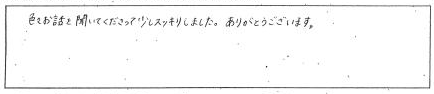 色々お話を聞いてくださって少しスッキリしました。ありがとうございます。